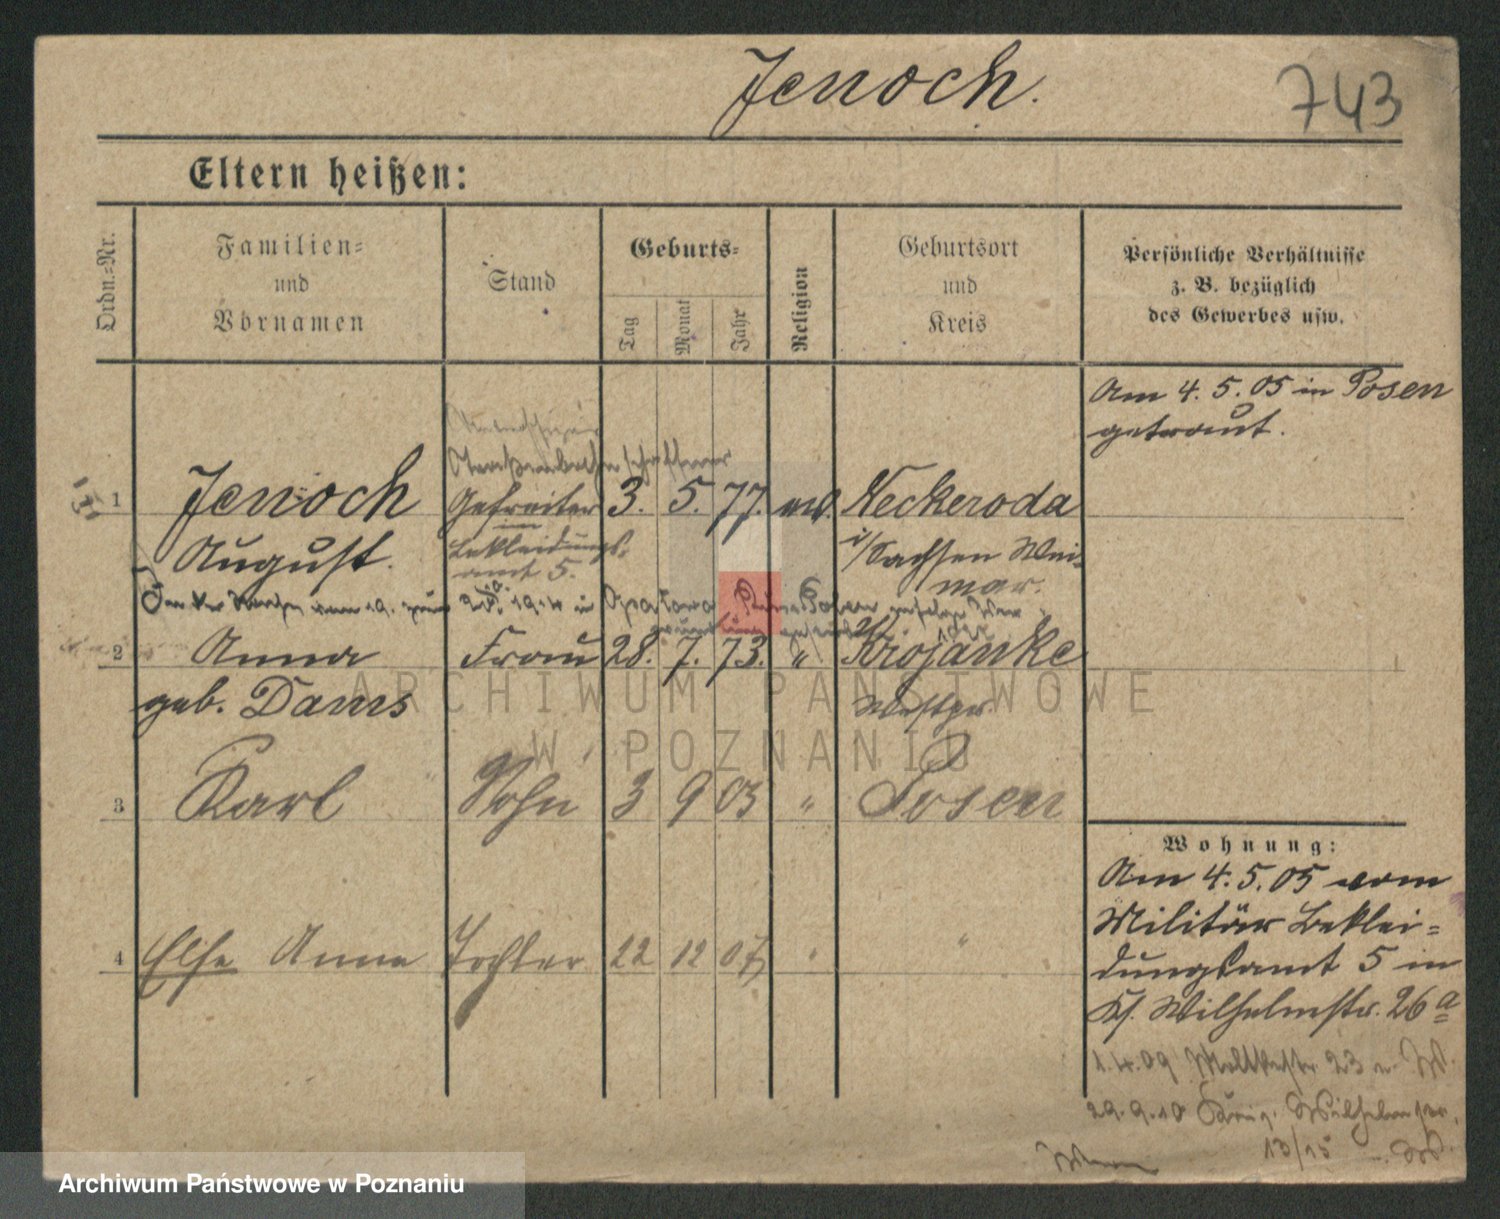 Jenoch.
743
Eltern heißen:
Ordn.-Nr.
Familien-
und
Vornamen
Stand
Geburts-
Tag
Monat
Jahr
Religion
Geburtsort
und
Kreis
Persönliche Verhältnisse
z. B. bezüglich
des Gewerbes usw.
Am 4. 5. 05 in Posen
getraut.
1 Jenoch Gefreiter 3. 5. 77. Neckeroda
August. Bekleidungs- i/Sachsen Wei-
amt 5. mar.
19. 1914 in Opatowo
2 Anna Frau 28. 7. 73. " Krojanke
geb. Dams Westpr.
3 Karl Sohn 3 9 03 " Posen
4 Else Anna Tochter 22 12 07 " "
Wohnung:
Am 4. 5. 05 vom
Militär Beklei-
dungsamt 5 in
Wilhelmstr. 26a
1.4.09 Moltkestr. 23
29.9.10 Wilhelmstr.
13/15
ARCHIWUM PAŃSTWOWE
W POZNANIU
Archiwum Państwowe w Poznaniu